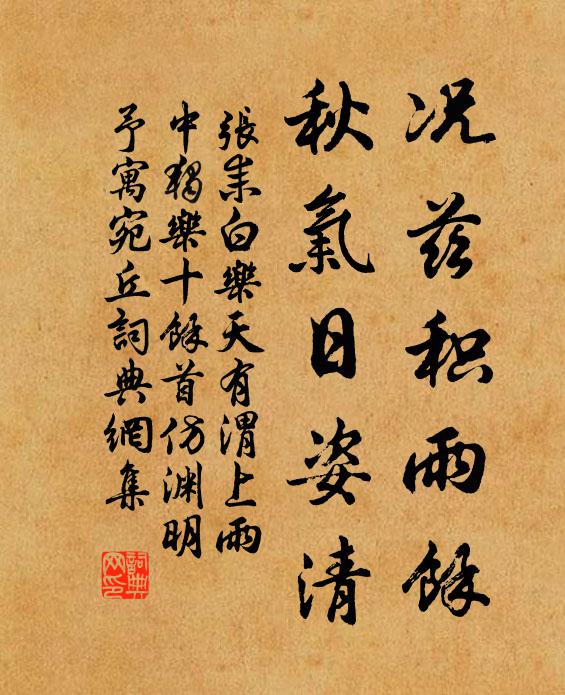 况兹积雨餘
秋氣日姿清
張耒白樂天有渭上雨
中獨樂十餘首仿淵明
予寓宛丘詞典網集
詞典网印